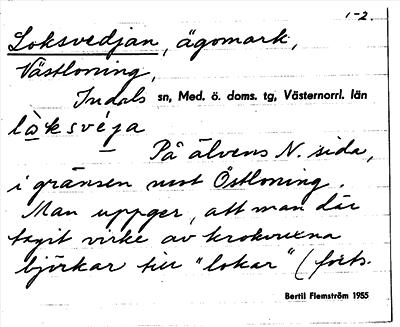 1-2.
Loksvedjan, ägomark,
Västloning,
Indals sn, Med. ö. doms. tg, Västernorrl. län
lò̀ksvéja
På älvens N. sida,
i gränsen mot Östloning.
Man uppger, att man där
tagit virke av krokvuxna
björkar till "lokar" (forts.
Bertil Flemström 1955